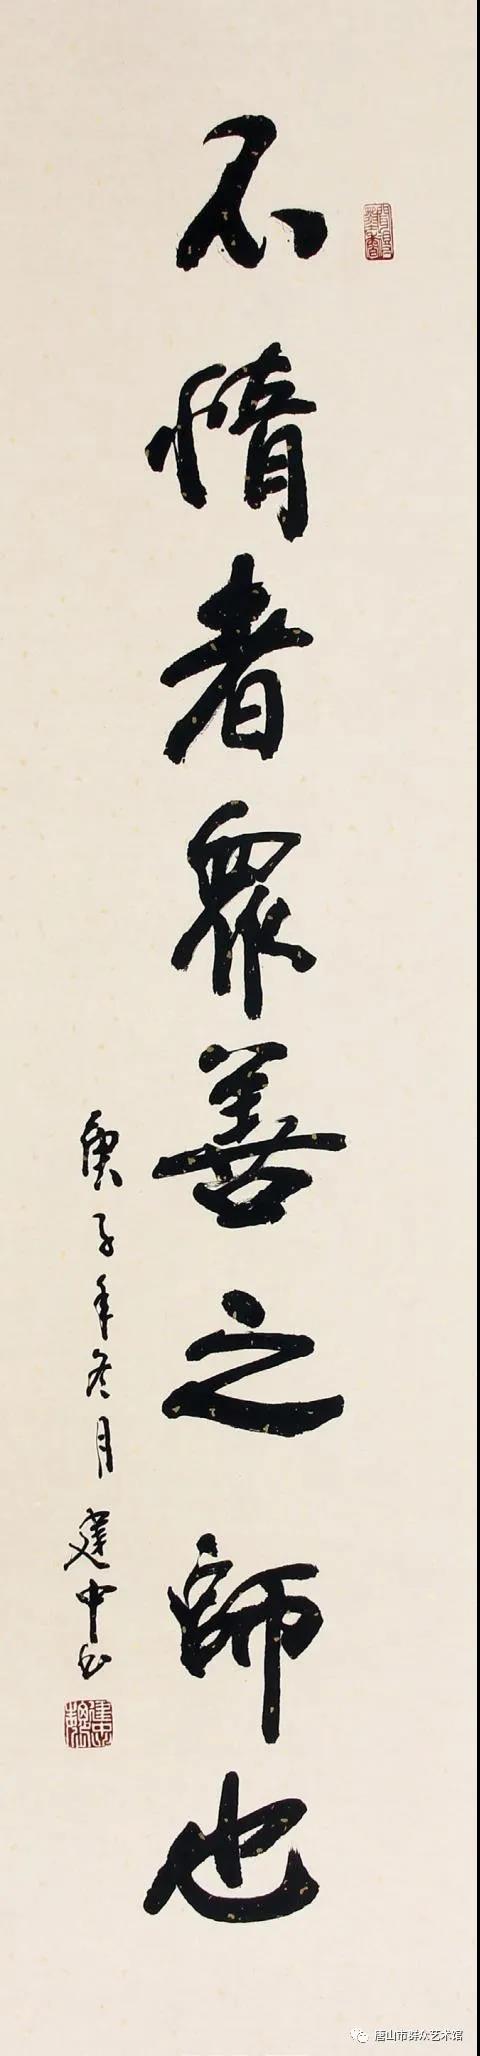 不惰者眾善之師也
庚子年冬月
建中书
唐山市群众艺术馆